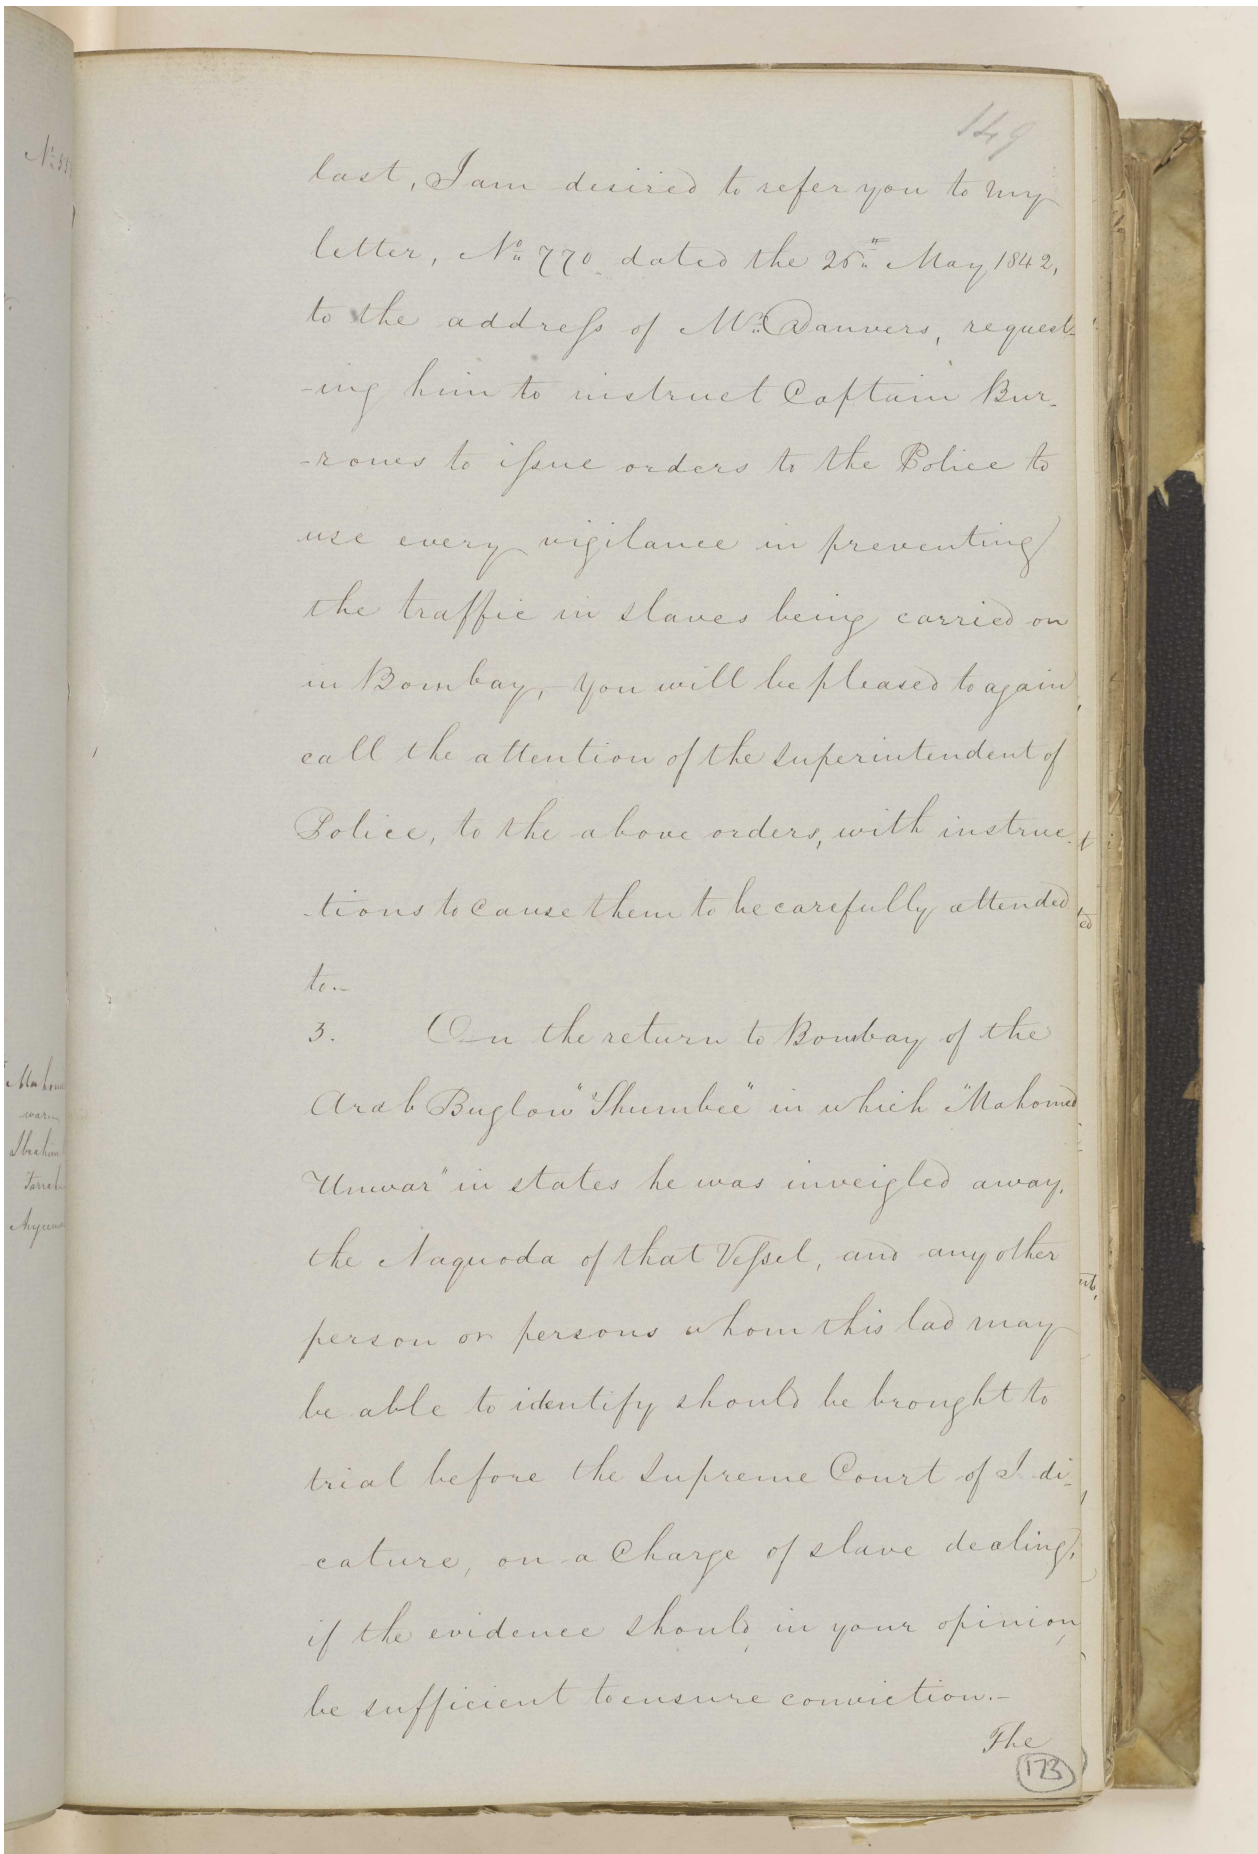 149
last, I am desired to refer you to my
letter, No. 770 dated the 26th May 1842,
to the address of Mr. Danvers, request-
-ing him to instruct Captain Bur-
-rows to issue orders to the Police to
use every vigilance in preventing
the traffic in slaves being carried on
in Bombay, - you will be pleased to again
call the attention of the Superintendent of
Police, to the above orders, with instruc-
-tions to cause them to be carefully attended
to.-
3. On the return to Bombay of the
Arab Buglow "Shumbee" in which "Mahomed
Unwar" in states he was inveigled away,
the Naquoda of that Vessel, and any other
person or persons whom this lad may
be able to identify should be brought to
trial before the Supreme Court of J di-
cature, on a Charge of slave dealing,
if the evidence should, in your opinion,
be sufficient to ensure conviction.-
The
173